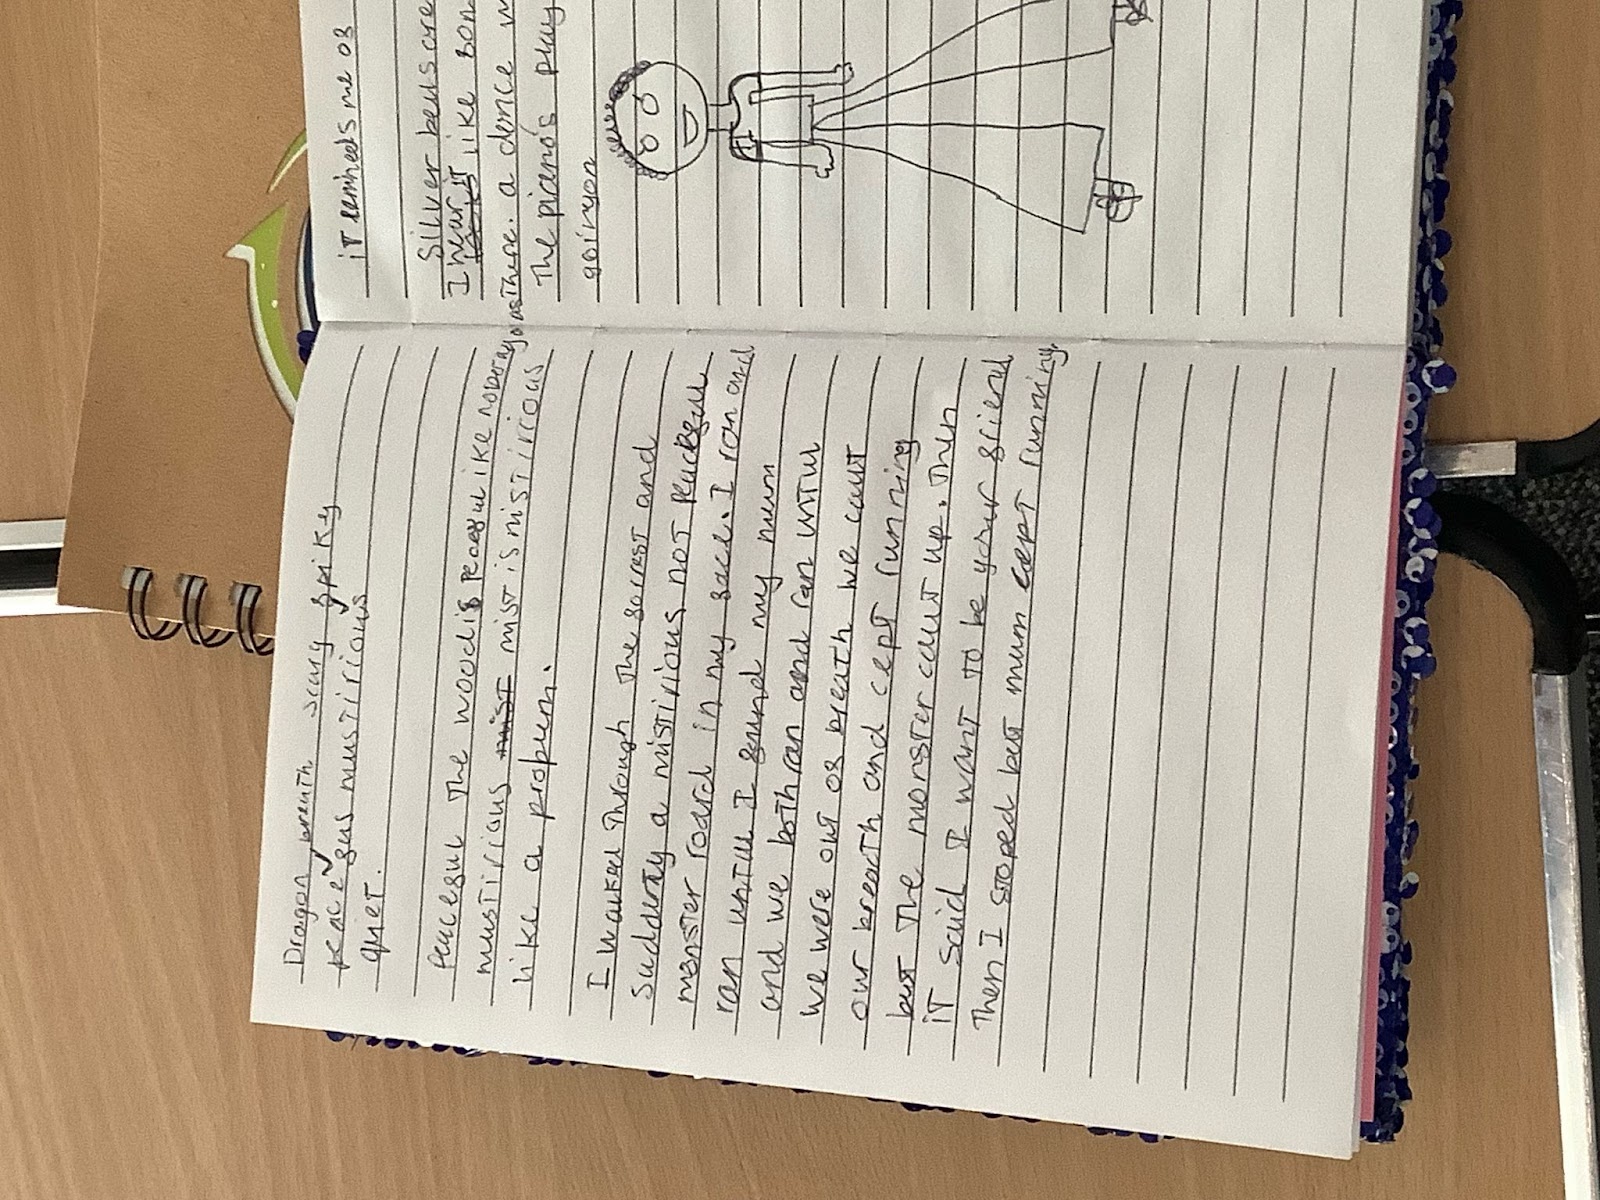 Dragon breath scary spiky
peacegus mustirious
quiet.
Peacegul the wood is peacegul like nobody
mustirious mist mist is mistirious
like a probum.
I walked through the gorrest and
suddenly a mistirious not peacegull
monster roard in my gace. I ran and
ran untill I gound my mum
and we both ran and ran untul
we were out og breath we caut
our breath and cept running
but the monster caut up. Then
iT said I want to be your griend
Then I stoped but mum cept running
iT reminds me og
Silver bells cre
I hear it like bon
as there. a dance
The piano's play
going on